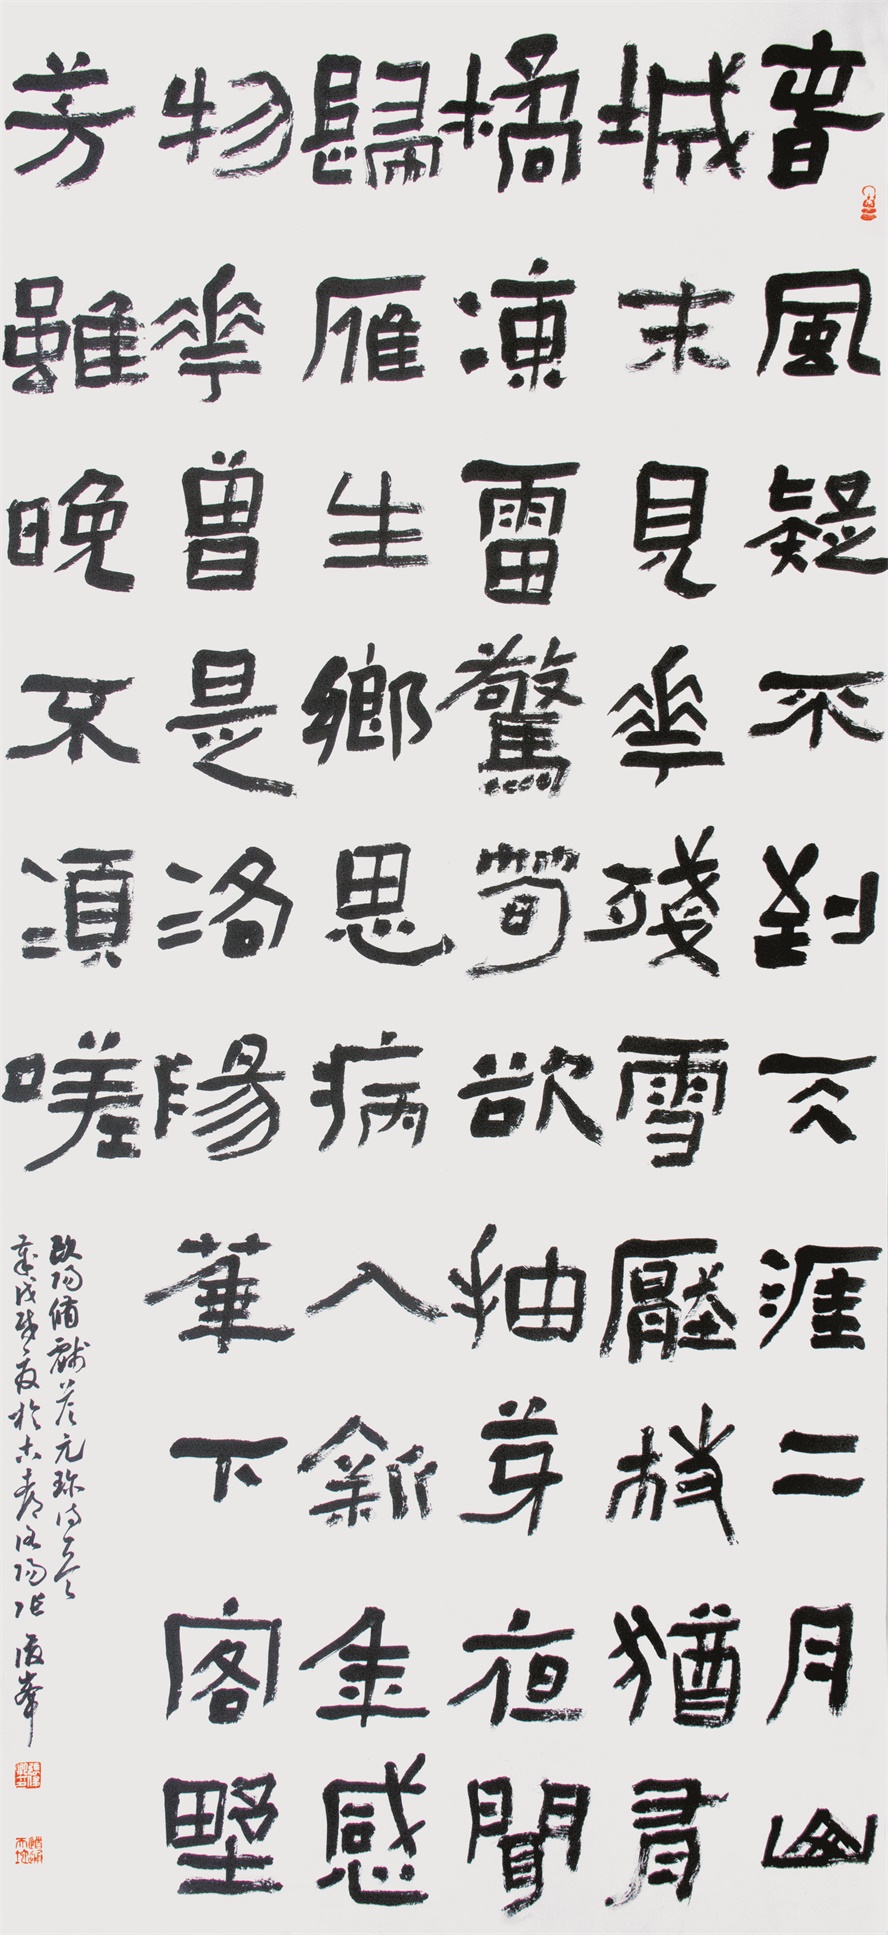 春風疑不到天涯二月山
城未見華殘雪壓枝猶有
橘凍雷驚筍欲抽芽夜聞
歸雁生鄉思病入新年感
物華曾是洛陽華下客野
芳雖晚不須嗟
歐陽脩戲答元珍詩
於古都洛陽張